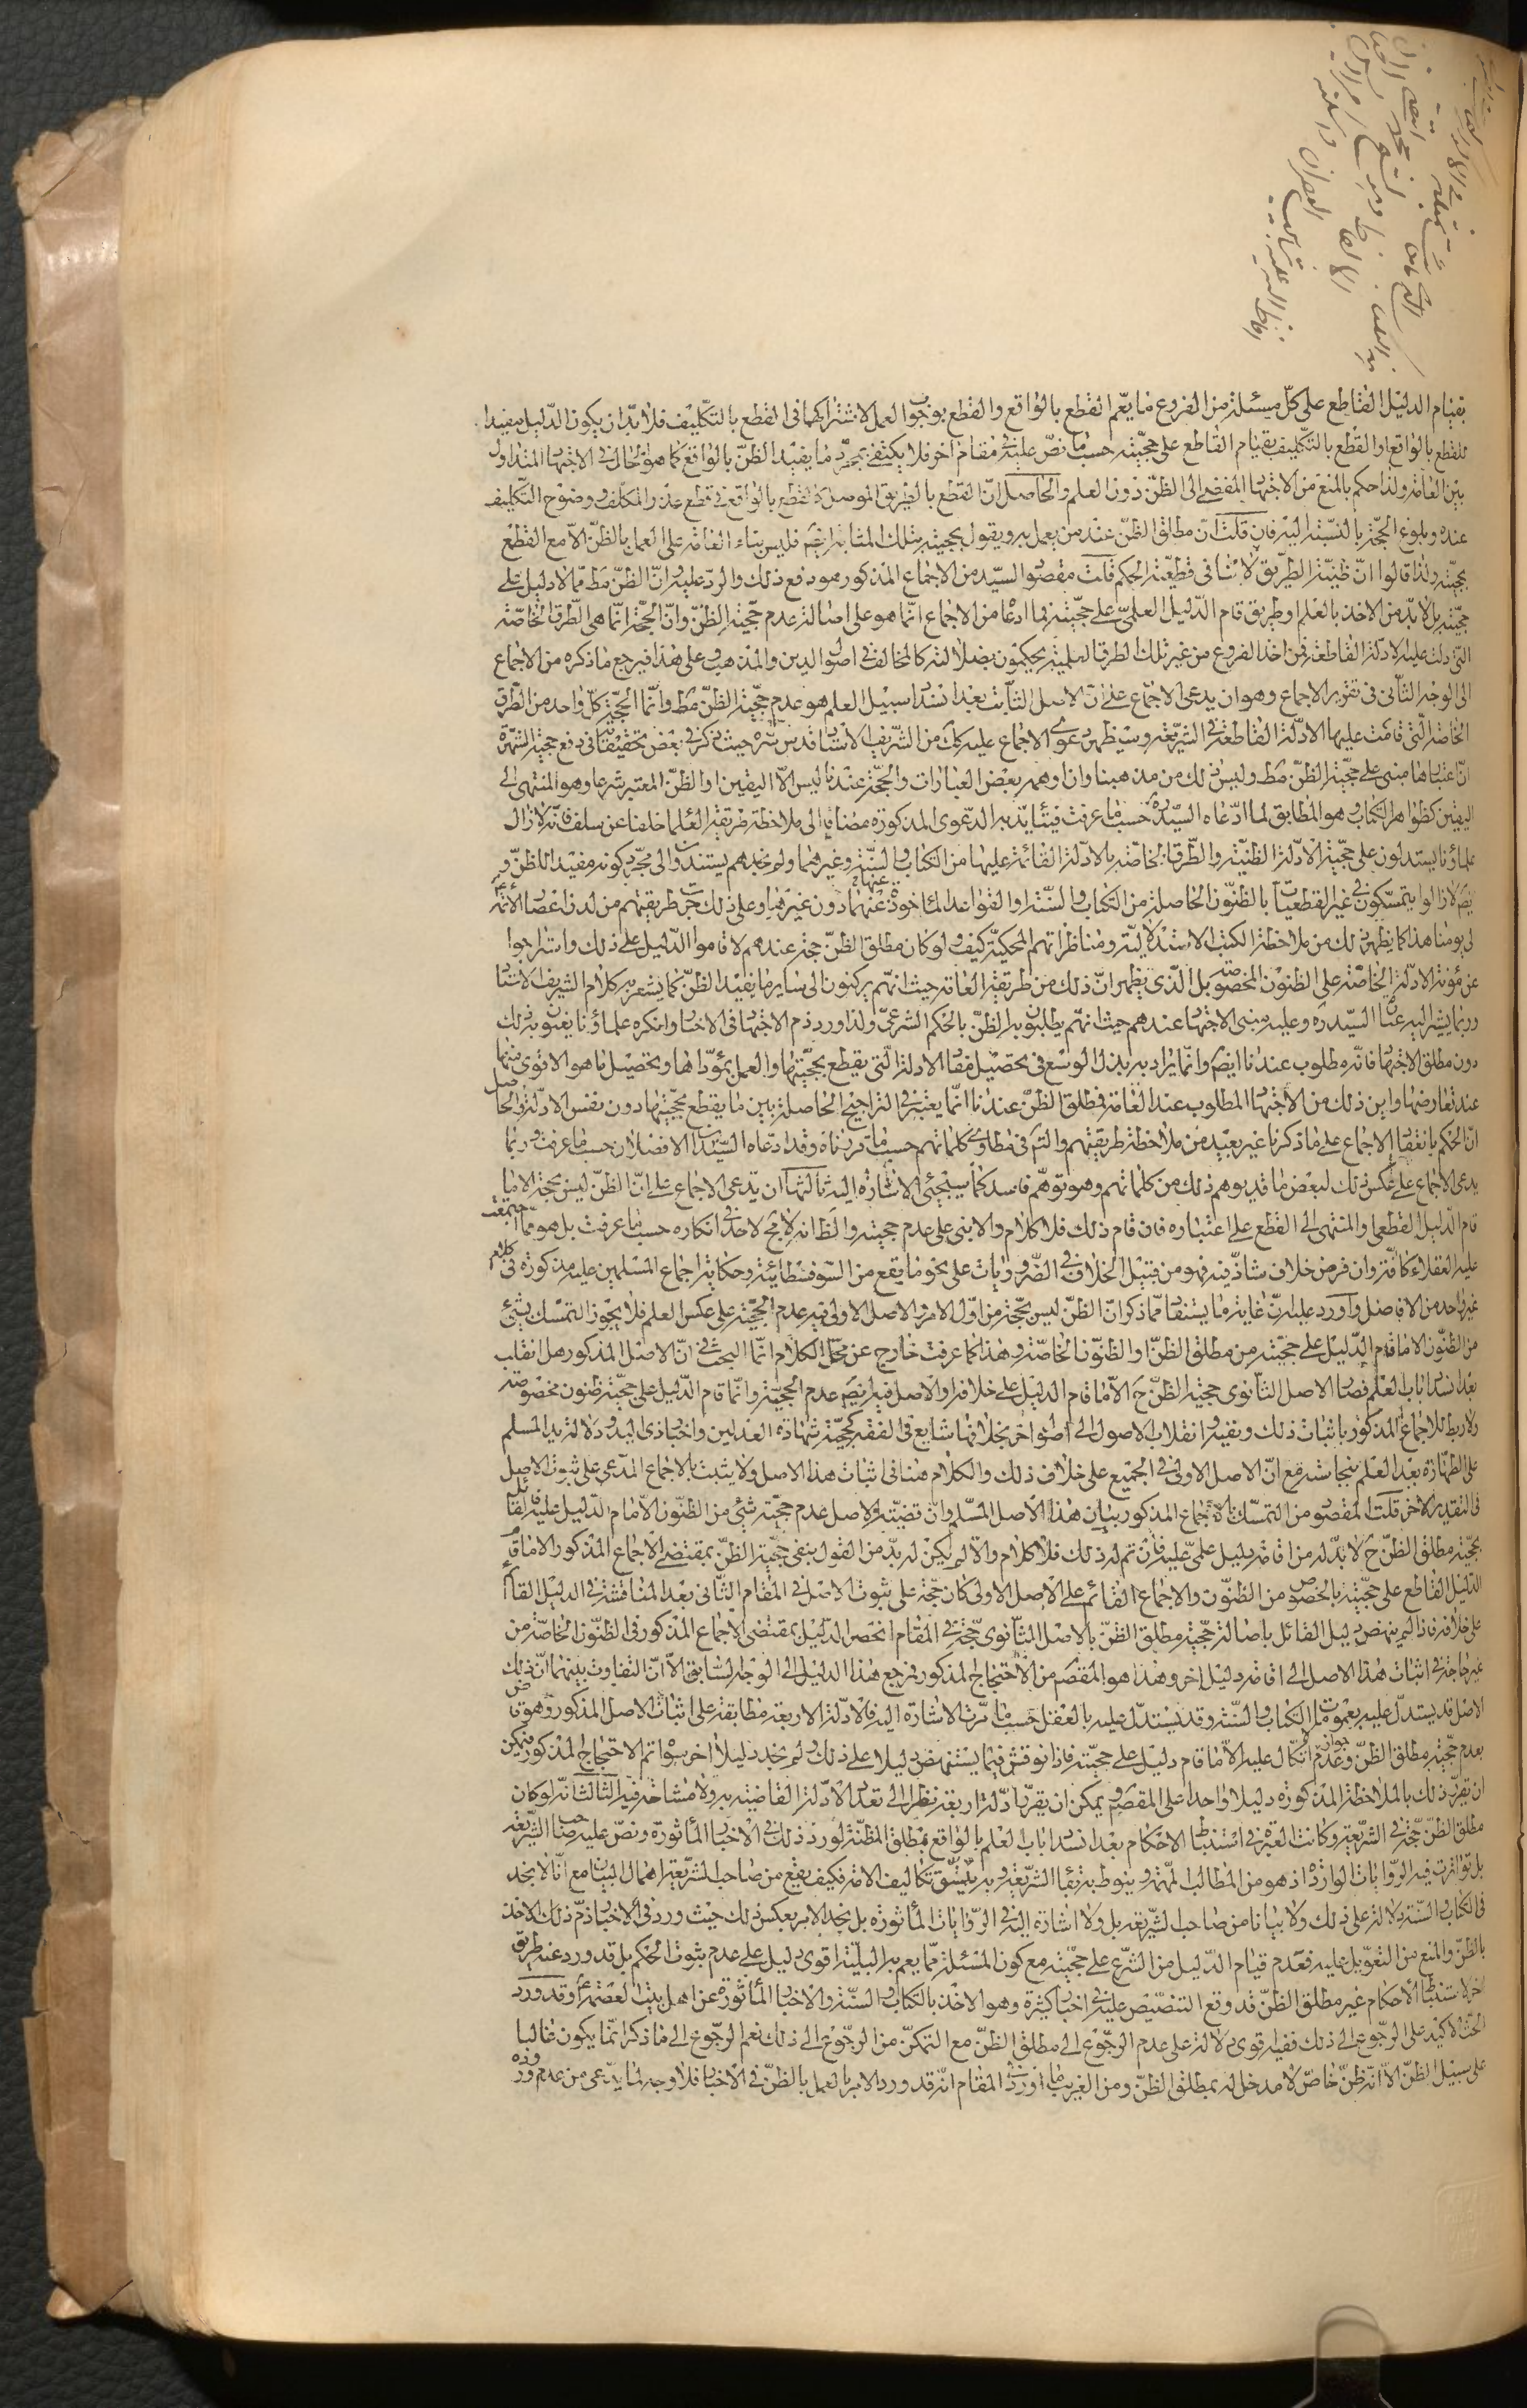 بقيام الدليل القاطع على كلّ مسئلة من الفروع ما يعّم القطع بالواقع والقطع بوجوب العمل لاشتراكهما فى القطع بالتكليف فلا بدّ ان يكون الدّليل مفيدا
للقطع بالواقع او القطع بالتكليف بقيام القاطع على حجّيته حسب ما نصّ عليه فى مقام اخر فلا يكتفى بمجرّد ما يفيد الظنّ بالواقع كما هو الحال فى الاجتهاد المتداول
بين العامّة ولذا حكم بالمنع من الاجتهاد المفضى الى الظنّ دون العلم والحاصل انّ القطع بالطريق الموصل كالقطع بالواقع فى قطع عذر المكلّف ووضوح التكليف
عنده وبلوغ الحجّة بالنسبة اليه فان قلت انّ مطلق الظنّ عند من يعمل به ويقول بحجيته بتلك المثابة ايضم فليس بناء العامّة على العمل بالظنّ الّا مع القطع
بحجيّته ولذا قالوا انّ ظنّية الطريق لا ينافى قطعيّة الحكم قلت مقصود السيّد من الاجماع المذكور هو دفع ذلك والردّ عليه بانّ الظنّ مط ممّا لا دليل على
حجيّته بل لا بدّ من الاخذ بالعلم او طريق قام الدّليل العلمىّ على حجيّته فما ادعاه من الاجماع انّما هو على اصالة عدم حجّية الظنّ وانّ الحجّة انّما هى الطّرق الخاصّة
التى دلت عليه الادلّة القاطعة فمن اخذ الفروع من غير تلك الطرق العلميّة يحكمون بضلالته كالمخالف فى اصول الدين والمذهب وعلى هذا فيرجع ما ذكره من الاجماع
الى الوجه الثانى فى تقرير الاجماع وهو ان يدعى الاجماع على انّ الاصل الثابت بعد انسداد سبيل العلم هو عدم حجّية الظنّ مط وانّما الحجّة كلّ واحد من الطّرق
الخاصّة الّتى قامت عليها الادلّة القاطعة فى الشّريعة وسيظهر دعوى الاجماع عليه كك من الشّريف الاستاد قدس سّره حيث ذكر فى بعض تحقيقاته فى دفع حجّية الشّهرة
انّ اعتبارها مبنى على حجّية الظنّ مط وليس ذلك من مذهبنا وان اوهمه بعض العبارات والحجّة عندنا ليس الّا اليقين او الظنّ المعتبر شرعا وهو المنتهى الى
اليقين كظواهر الكتاب وهو المطابق لما ادّعاه السيّد ره حسب ما عرفت فيتايّد به الدّعوى المذكورة مضافا الى ملاحظة طريقة العلماء خلفا عن سلف فانّه لا زال
علماؤنا يستدلون على حجيّة الادلّة الظنيّة والطّرق الخاصّة بالادلّة القائمة عليها من الكتاب والسنّة وغيرهما ولم نجدهم يستندون الى مجّرد كونه مفيدا للظنّ و
ايضم لا زالوا يتمسّكون فى غير القطعيات بالظنّون الحاصلة من الكتاب والسنّة او القواعد المأخوذة عنهما دون غيرها وعلى ذلك جرت طريقتهم من لدن اعصار الائمة
الى يومنا هذا كما يظهر ذلك من ملاحظة الكتب الاستدلاليّة ومناظراتهم المحكيّة كيف ولو كان مطلق الظنّ حجة عندهم لاقاموا الدّليل على ذلك واستراحوا
عن مؤنة الادلّة الخاصّة على الظنون المخصوصة بل الّذى يظهر انّ ذلك من طريقة العامّة حيث انّهم يركنون الى ساير ما يفيد الظنّ كما يشعر به كلام الشريف الاستاد
وربما يشير اليه عبارة السيّد ره وعليه مبنى الاجتهاد عندهم حيث انّهم يطلبون به الظنّ بالحكم الشرعىّ ولذا ورد ذم الاجتهاد فى الاخبار وانكره علماؤنا يعنون به ذلك
دون مطلق الاجتهاد فانّه مطلوب عندنا ايضم وانّما يراد به بذل الوسع فى تحصيل مفاد الادلة الّتى يقطع بحجيّتها والعمل بمؤدّاها وتحصيل ما هو الاقوى منها
عند تعارضها واين ذلك من الاجتهاد المطلوب عند العامّة فمطلق الظنّ عندنا انّما يعتبر فى التراجيح الحاصلة بين ما يقطع بحجّيتها دون نفس الادلّة والحاصل
انّ الحكم بانعقاد الاجماع على ما ذكرنا غير بعيد من ملاحظة طريقتهم والتتبع فى مطاوى كلماتهم حسب ما قررناه وقد ادعاه السيّدان الافضلان حسب ما عرفت وربما
يدعى الاجماع على عكس ذلك لبعض ما قد يوهم ذلك من كلماتهم وهو توهّم فاسد كما سيجئى الاشارة اليه ثالثها ان يدّعى الاجماع على انّ الظنّ ليس بحجة الا ما
قام الدّليل القطعى والمنتهى الى القطع على اعتباره فان قام ذلك فلا كلام والا بنى على عدم حجيته والظ انه لا مج لاحد فى انكاره حسب ما عرفت بل هو ممّا اجتمعت
عليه العقلاء كافّة وان فرض خلاف شاذّ فيه فهو من قبيل الخلاف فى الضّروريات على نحو ما يقع من السّوفسطائية وحكاية اجماع المسلمين عليه مذكورة فى كلام
غير واحد من الافاضل واورد عليه بانّ غاية ما يستفاد ممّا ذكر انّ الظنّ ليس بحجّة من اوّل الامر والاصل الاولى فيه عدم الحجيّة على عكس العلم فلا يجوز التمسّك بشئ
من الظنّون الا ما قام الدّليل على حجيّته من مطلق الظنّ او الظنّون الخاصّة وهذا كما عرفت خارج عن محلّ الكلام انّما البحث فى انّ الاصل المذكور هل انقلب
بعد انسداد باب العلم فصار الاصل الثانوى حجية الظنّ ح الّا ما قام الدليل على خلافه او الاصل فيه ايضم عدم الحجيّة وانّما قام الدّليل على حجيّة ظنون مخصوصة
ولا ربط للاجماع المذكور باثبات ذلك ونفيه وانقلاب الاصول الى اصول اخر بخلافها شايع فى الفقه كحجيّة شهادة العدلين واخبار ذى اليد ودلالة يد المسلم
على الطهارة بعد العلم بنجاسته مع انّ الاصل الاولى فى الجميع على خلاف ذلك والكلام هنا فى اثبات هذا الاصل ولا يثبت بالاجماع المدّعى على ثبوت الاصل
فى التقدير الاخر قلت المقصود من التمسّك بالاجماع المذكور بيان هذا الاصل المسلم وانّ قضيّته الاصل عدم حجيّة شئ من الظنّون الّا ما قام الدّليل عليه فالقائل
بحجّية مطلق الظنّ ح لا بدّ له من اقامة دليل علمىّ عليه فان تم له ذلك فلا كلام والّا لم يكن له بدّ من القول بنفى حجيّة الظنّ بمقتضى الاجماع المذكور الا ما قام
الدّليل القاطع على حجيّته بالخصوص من الظنّون والاجماع القائم على الاصل الاولى كان حجّة على ثبوت الاصل فى المقام الثّانى بعد المناقشة فى الدليل القائم
على خلافه فاذا لم ينهض دليل القائل باصالة حجيّة مطلق الظنّ بالاصل الثّانوى حجّة فى المقام انحصر الدّليل بمقتضى الاجماع المذكور فى الظنّون الخاصّة من
غير حاجة فى اثبات هذا الاصل الى اقامة دليل اخر وهذا هو المقصم من الاحتجاج المذكور فمرجع هذا الدليل الى الوجه السّابق الّا انّ التفاوت بينهما انّ ذلك
الاصل قد يستدلّ عليه بعمومات الكتاب والسنّة وقد يستدلّ عليه بالعقل حسب ما مرّت الاشارة اليه فالادلّة الاربعة مطابقة على اثبات الاصل المذكور وهو قاض
بعدم حجّية مطلق الظنّ وعدم جواز اتّكال عليه الّا ما قام دليل على حجيّته فاذا نوقش فيما يستنهض دليلا على ذلك ولم نجد دليلا اخر سواه تم الاحتجاج المذكور فيمكن
ان يقرّر ذلك بالملاحظة المذكورة دليلا واحدا على المقصم ويمكن ان يقرّر بادلّة اربعة نظرا الى تعدّد الادّلة القاضية به ولا مشاحّة فيه الثالث انّه لو كان
مطلق الظنّ حجّة فى الشّريعة وكانت العبرة فى استنباط الاحكام بعد انسداد باب العلم بالواقع بمطلق المظنّة لورد ذلك فى الاخبار المأثورة ونصّ عليه صاحب الشّريعة
بل تواترت فيه الرّوايات الواردة اذ هو من المطالب المهمّة وينوط به بقاء الشّريعة وبه يتّسق تكاليف الامّة فكيف يقع من صاحب الشّريعة اهمال البيان مع انّا لا نجد
فى الكتاب والسنّة دلالة على ذلك ولا بيانا من صاحب الشّريعة بل ولا اشارة اليه فى الرّوايات المأثورة بل نجد الامر بعكس ذلك حيث ورد فى الاخبار ذمّ ذلك الاخذ
بالظنّ والمنع من التعويل عليه فعدم قيام الدّليل من الشّرع على حجّيته مع كون المسئلة ممّا يعم به البليّة اقوى دليل على عدم ثبوت الحكم بل قد ورد عنه طريق
اخر لاستنباط الاحكام غير مطلق الظنّ قد وقع التنصيص عليه فى اخبار كثيرة وهو الاخذ بالكتاب والسنّة والاخبار المأثورة عن اهل بيت العصمة وقد ورد
الحثّ الاكيد على الرّجوع الى ذلك ففيه اقوى دلالة على عدم الرّجوع الى مطلق الظنّ مع التمكنّ من الرجّوع الى ذلك نعم الرجّوع الى ما ذكر انّما يكون غالبا
على سبيل الظنّ الّا انّه ظنّ خاصّ لا مدخل له بمطلق الظنّ ومن الغريب ما اورد فى المقام انّه قد ورد الامر بالعمل بالظنّ فى الاخبار فلا وجه لما يدّعى من عدم وروده